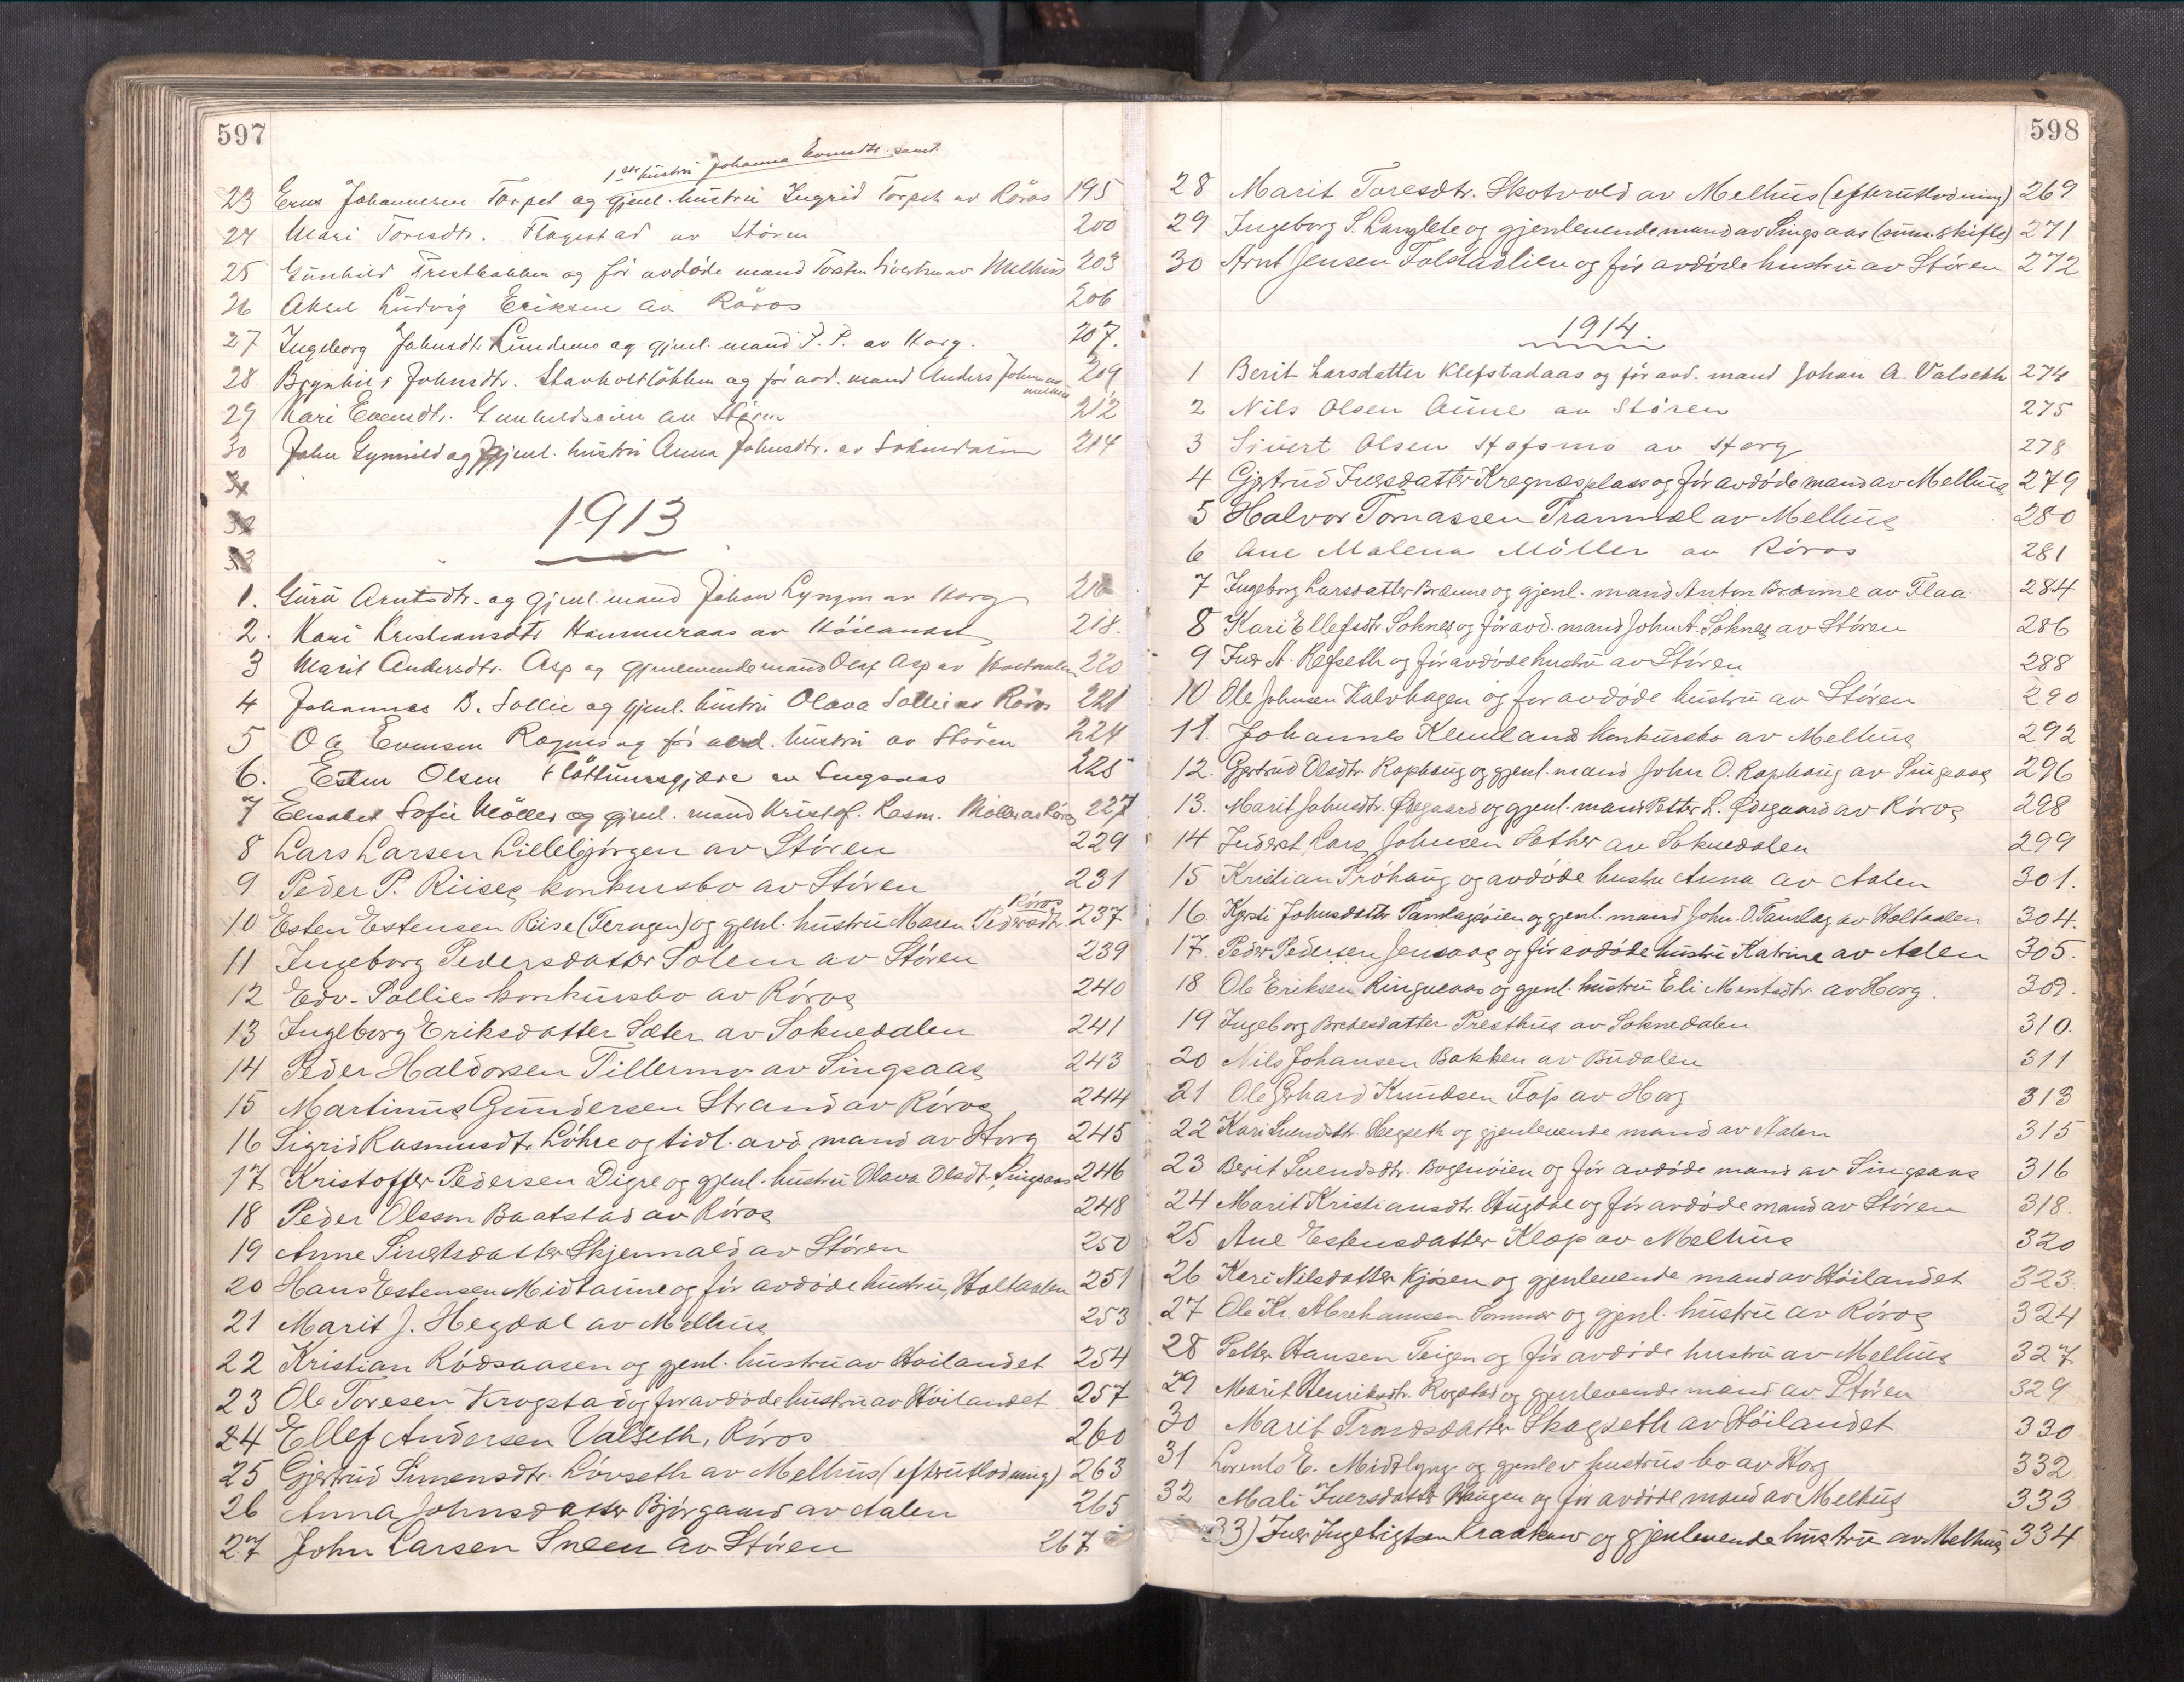 597
1ste hustru Johanna Evensdtr. samt
23 Johannesen Torpet og gjenl. hustru Ingrid Torpet av Röros 195
24 Mari Toresdtr. Flagestad av Stören 200
25 Gunhild og för avdöde mand Torsten Sivertsen av Melhus 203
26 Aksel Ludvig Eriksen av Röros 206
27 Ingeborg Johnsdtr. Lundemo og gjenl. mand P. P. av Horg. 207.
28 Brynhild Johnsdtr. og för avd. mand Anders Johnsen av Melhus 209
29 Kari Evensdtr. av Stören 212
30 John Gynnild og gjenl. hustru Anna Johnsdtr. av Soknedalen 214
31
32
33
1913
1. Guru Arntsdtr. og gjenl. mand Johan Lyngen av Horg
2. Kari Kristiansdtr. Hammeraas av Höilandet 218.
3 Marit Andersdtr. Asp og gjenlevende mand Oluf Asp av Holtaalen 220
4 Johannes B. Sollie og gjenl. hustru Olava Sollie av Röros 221
5 Ole Evensen Rognes og för avd. hustru av Stören 224
6. Esten Olsen av Singsaas 225
7 Elisabet Sofie Möller og gjenl. mand Kristof. Rasm. Möller av Röros 227
8 Lars Larsen Lillebjörgen av Stören 229
9 Peder P. Riises konkursbo av Stören 231
10 Esten Estensen Riise (Feragen) og gjenl. hustru Maren Pedersdtr. Röros 237
11 Ingeborg Pedersdatter Solem av Stören 239
12 Edv. Sollies konkursbo av Röros 240
13 Ingeborg Eriksdatter Sæter av Soknedalen 241
14 Peder Haldorsen Tillermo av Singsaas 243
15 Martinus Gundersen Strand av Röros 244
16 Sigrid Rasmusdtr. Löhre og tidl. avd. mand av Horg 245
17 Kristoffer Pedersen Digre og gjenl. hustru Olava Olsdtr. Singsaas 246
18 Peder Olsson Baatstad av Röros 248
19 Anne Sivertsdatter Skjervold av Stören 250
20 Hans Estensen Midtaune og för avdöde hustru, Holtaalen 251
21 Marit J. Hegdal av Melhus 253
22 Kristian Rödsaasen og gjenl. hustru av Höilandet 254
23 Ole Toresen Krogstad og for avdöde hustru av Höilandet 257
24 Ellef Andersen Valseth, Röros 260
25 Gjertrud Simensdtr. Lövseth av Melhus (efterutlodning) 263
26 Anna Johnsdatter Björgaard av Aalen 265
27 John Larsen Sneen av Stören 267
598
28 Marit Toresdtr. Skotvold av Melhus (efterutlodning) 269
29 Ingeborg S. Langlete og gjenlevende mand av Singsaas (summ. skifte) 271
30 Arnt Jensen Folstadlien og för avdöde hustru av Stören 272
1914.
1 Berit Larsdatter Klefstadaas og för avd. mand Johan A. Valseth 274
2 Nils Olsen Aune av Stören 275
3 Sivert Olsen Hofsmo av Horg 278
4 Gjertrud Iversdatter Kregnæsplass og för avdöde mand av Melhus 279
5 Halvor Tomassen Tranmæl av Melhus 280
6 Ane Malena Möller av Röros 281
7 Ingeborg Larsdatter Brænne og gjenl. mand Anton Brænne av Flaa 284
8 Kari Ellefsdtr. Soknes og för avd. mand John A. Soknes av Stören 286
9 Iver A. Refseth og för avdöde hustru av Stören 288
10 Ole Johnsen Kalvhagen og for avdöde hustru av Stören 290
11. Johannes Kvinlands konkursbo av Melhus 292
12. Gjertrud Olsdtr. Kaphaug og gjenl. mand John O. Kaphaug av Singsaas 296
13. Marit Johnsdtr. Ødegaard og gjenl. mand Petter L. Ødegaard av Röros 298
14 Inderst Lars Johnsen Sæther av Soknedalen 299
15 Kristian Tröhaug og avdöde hustru Anna av Aalen 301.
16. Kjersti Johnsdatter Tamlagöien og gjenl. mand John O. Tamlag av Holtaalen 304.
17. Peder Pedersen Jensaas og för avdöde hustru Katrine av Aalen 305.
18 Ole Eriksen Ringneaas og gjenl. hustru Eli Mentsdtr. av Horg. 309.
19 Ingeborg Bredesdatter Presthus av Soknedalen 310.
20 Nils Johansen Bakken av Budalen 311
21 Ole Gerhard Knudsen Fos av Horg 313
22 Kari Svendsdtr. Hegseth og gjenlevende mand av Aalen 315
23 Berit Svendsdtr. Bogenöien og för avdöde mand av Singsaas 316
24 Marit Kristiansdtr. Hugdal og för avdöde mand av Stören 318.
25 Ane Estensdatter Klæp av Melhus 320
26 Kari Nilsdatter Kjösen og gjenlevende mand av Höilandet 323.
27 Ole Kr. Abrahamsen Sommer og gjenl. hustru av Röros 324
28 Petter Hansen Teigen og för avdöde hustru av Melhus 327
29 Marit Henriksdtr. Rogstad og gjenlevende mand av Stören 329
30 Marit Trondsdatter Skogseth av Höilandet 330
31 Lorents E. Midtlyng og gjenlev hustrus bo av Horg 332
32 Mali Iversdatter Haugen og för avdöde mand av Melhus 333
33) Iver Ingebrigtsen Kraakmo og gjenlevende hustru av Melhus 334